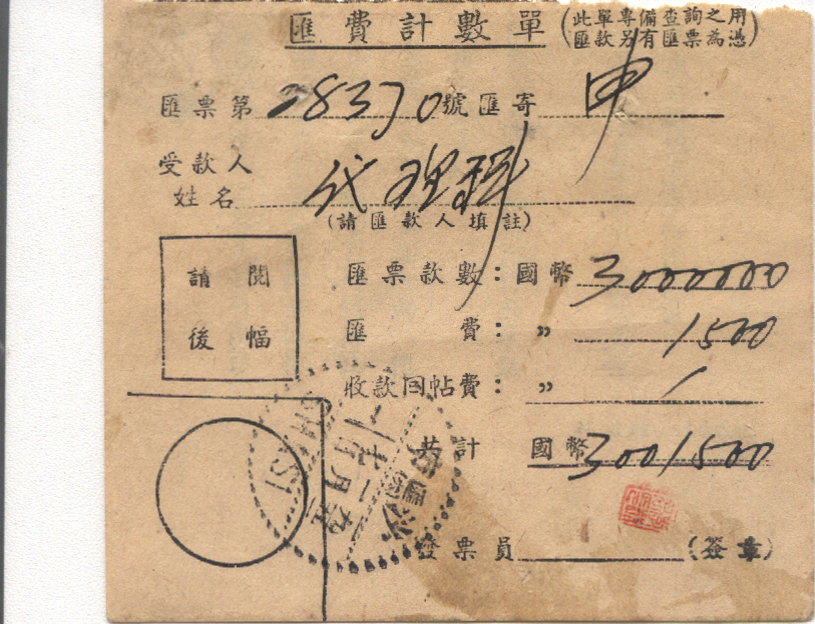 匯費計數單
(此單專備查詢之用
匯款另有匯票為憑)
匯票第 28370 號匯寄 申
受款人
姓名 代理科
(請匯款人填註)
請閱
後幅
匯票款數：國幣 3000000
匯費：〃 1500
收款回帖費：〃 /
共計 國幣 3001500
發票員 (簽章)